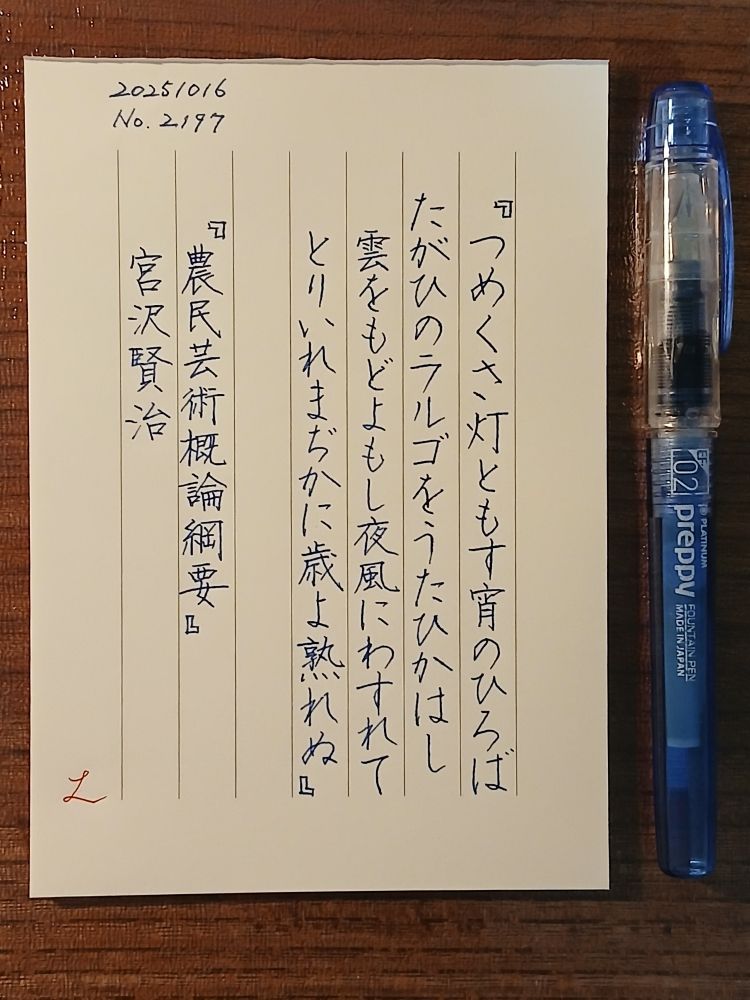 20251016
No. 2197
『つめくさ灯ともす宵のひろば
たがひのラルゴをうたひかはし
雲をもどよもし夜風にわすれて
とりいれまぢかに歳よ熟れぬ』
『農民芸術概論綱要』
宮沢賢治
L
EF
02
PLATINUM
preppy
FOUNTAIN PEN
MADE IN JAPAN